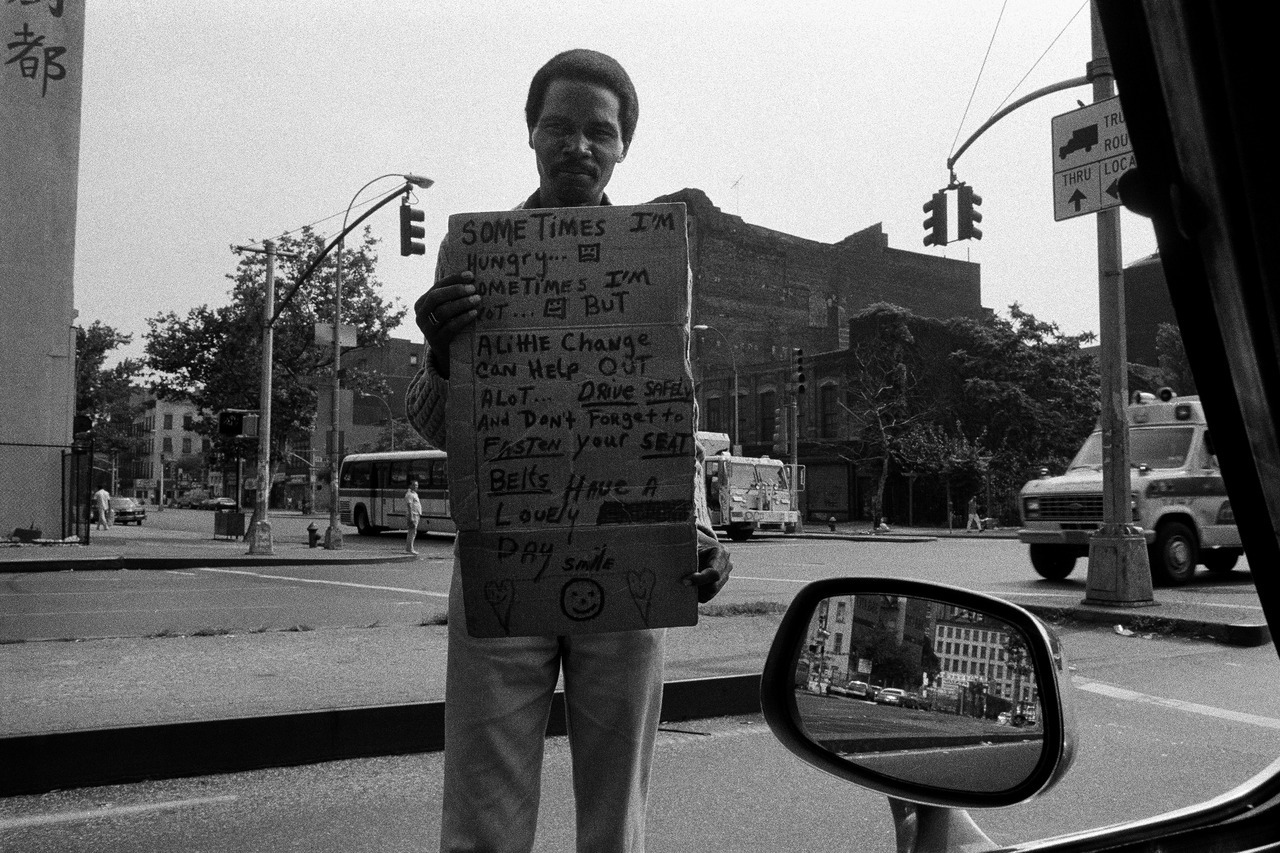 都
SOMETIMES I'M
HUNgry...
SOMETIMES I'M
NOT... BUT
A LiTTLE CHANgE
CAN HELP OUT
ALOT... DRIVE SAFELy
AND DON'T FORgET to
FASTEN your SEAT
BELTS HAVE A
LOVELy
DAY SMiLE
TRU
ROU
THRU
LOCA